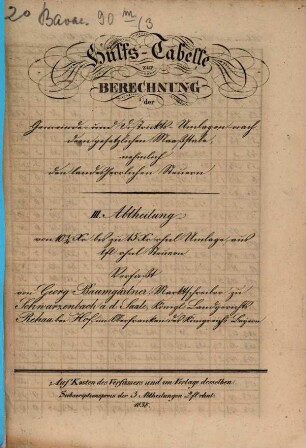 20 Bavar. 90 m/3
Hülfs-Tabelle
zur
BERECHNUNG
der
Gemeinde und Distrikts Umlagen nach
dem gesetzlichen Maasstabe,
nehmlich
den landesherrlichen Steuern
III. Abtheilung
von 10⅛ Kr. bis zu 15 Kr. rhnl Umlage, aus
1fl rhnl Steuern
Verfasst
von Georg Baumgärtner Marktschreiber zu
Schwarzenbach a. d. Saale, Königl Landgerichts
Rehau bei Hof, im Oberfrankendes Königreichs Bayern
Auf Kosten des Verfassers und im Verlage desselben
Subscriptionspreis der 3 Abtheilungen 2fl rhnl:
1838.